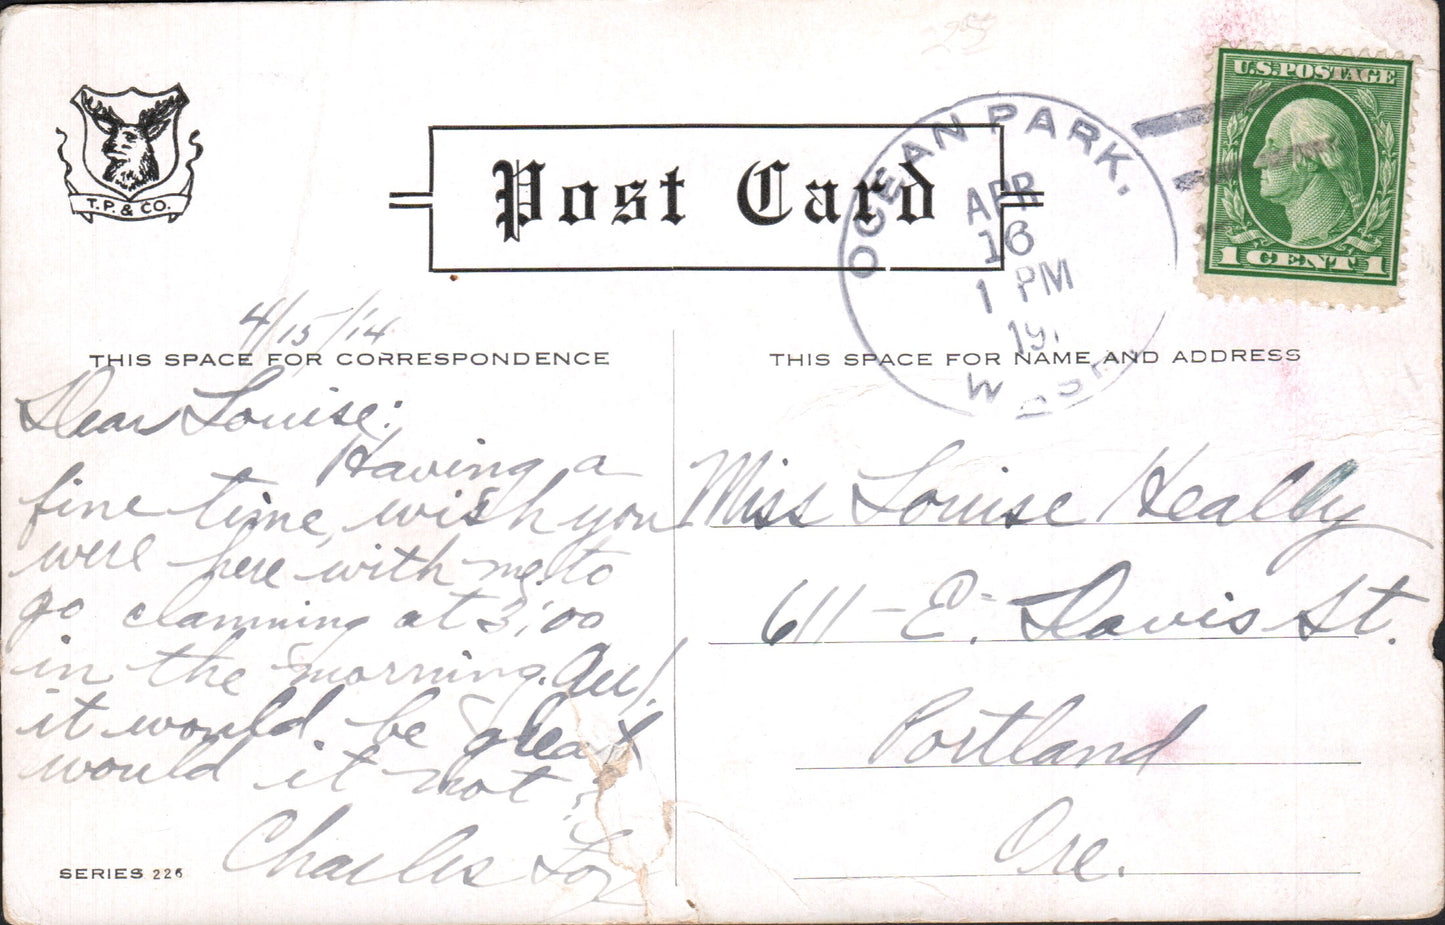 25
T.P. & CO.
Post Card
OCEAN PARK,
APR
16
1 PM
19
WASH.
U.S. POSTAGE
1 CENT 1
4/15/14
THIS SPACE FOR CORRESPONDENCE
THIS SPACE FOR NAME AND ADDRESS
Dear Louise:
Having a
fine time, wish you
were here with me to
go clamming at 3:00
in the morning.
it would be great
would it not?
Charles
SERIES 226
Miss Louise Healby
611 - E. Davis St.
Portland
Ore.